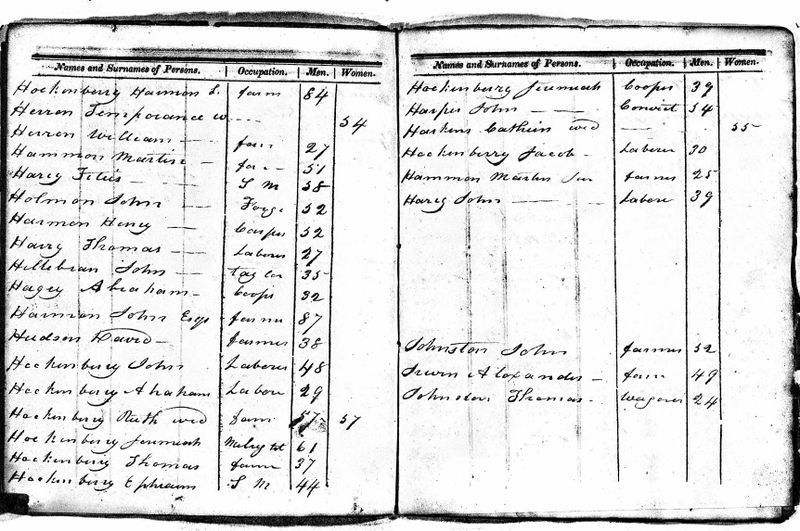 Names and Surnames of Persons. Occupation. Men. Women.
Hockenberry Harmon farm 84
Herron Temporance w 54
Herren William farm 27
Hammon Martin fa 51
Harey S M 38
Holmon John Forge 52
Harmon Henry 52
Harry Thomas Laborer 27
John Taylor 35
Hagey Abraham Coops 32
Harmon John Esqr farmer 87
Hudson David farmer 38
Hockenbery John Laborer 48
Hockenbery Abraham Labore 29
Hockenbery Ruth wid farm 57
Hockenbery Jeremiah 61
Hockenberry Thomas farme 37
Hockenberry Ephraim S M 44
Names and Surnames of Persons. Occupation. Men. Women.
Hockenberry Jeremiah Cooper 39
Harper John 54
Haskens Cathrin wid 55
Hockenberry Jacob Laborer 30
Hammon Martin farmer 25
Harey John Labore 39
Johnston John farmer 52
Irwin Alexander farm 49
Johnston Thomas Wagoner 24